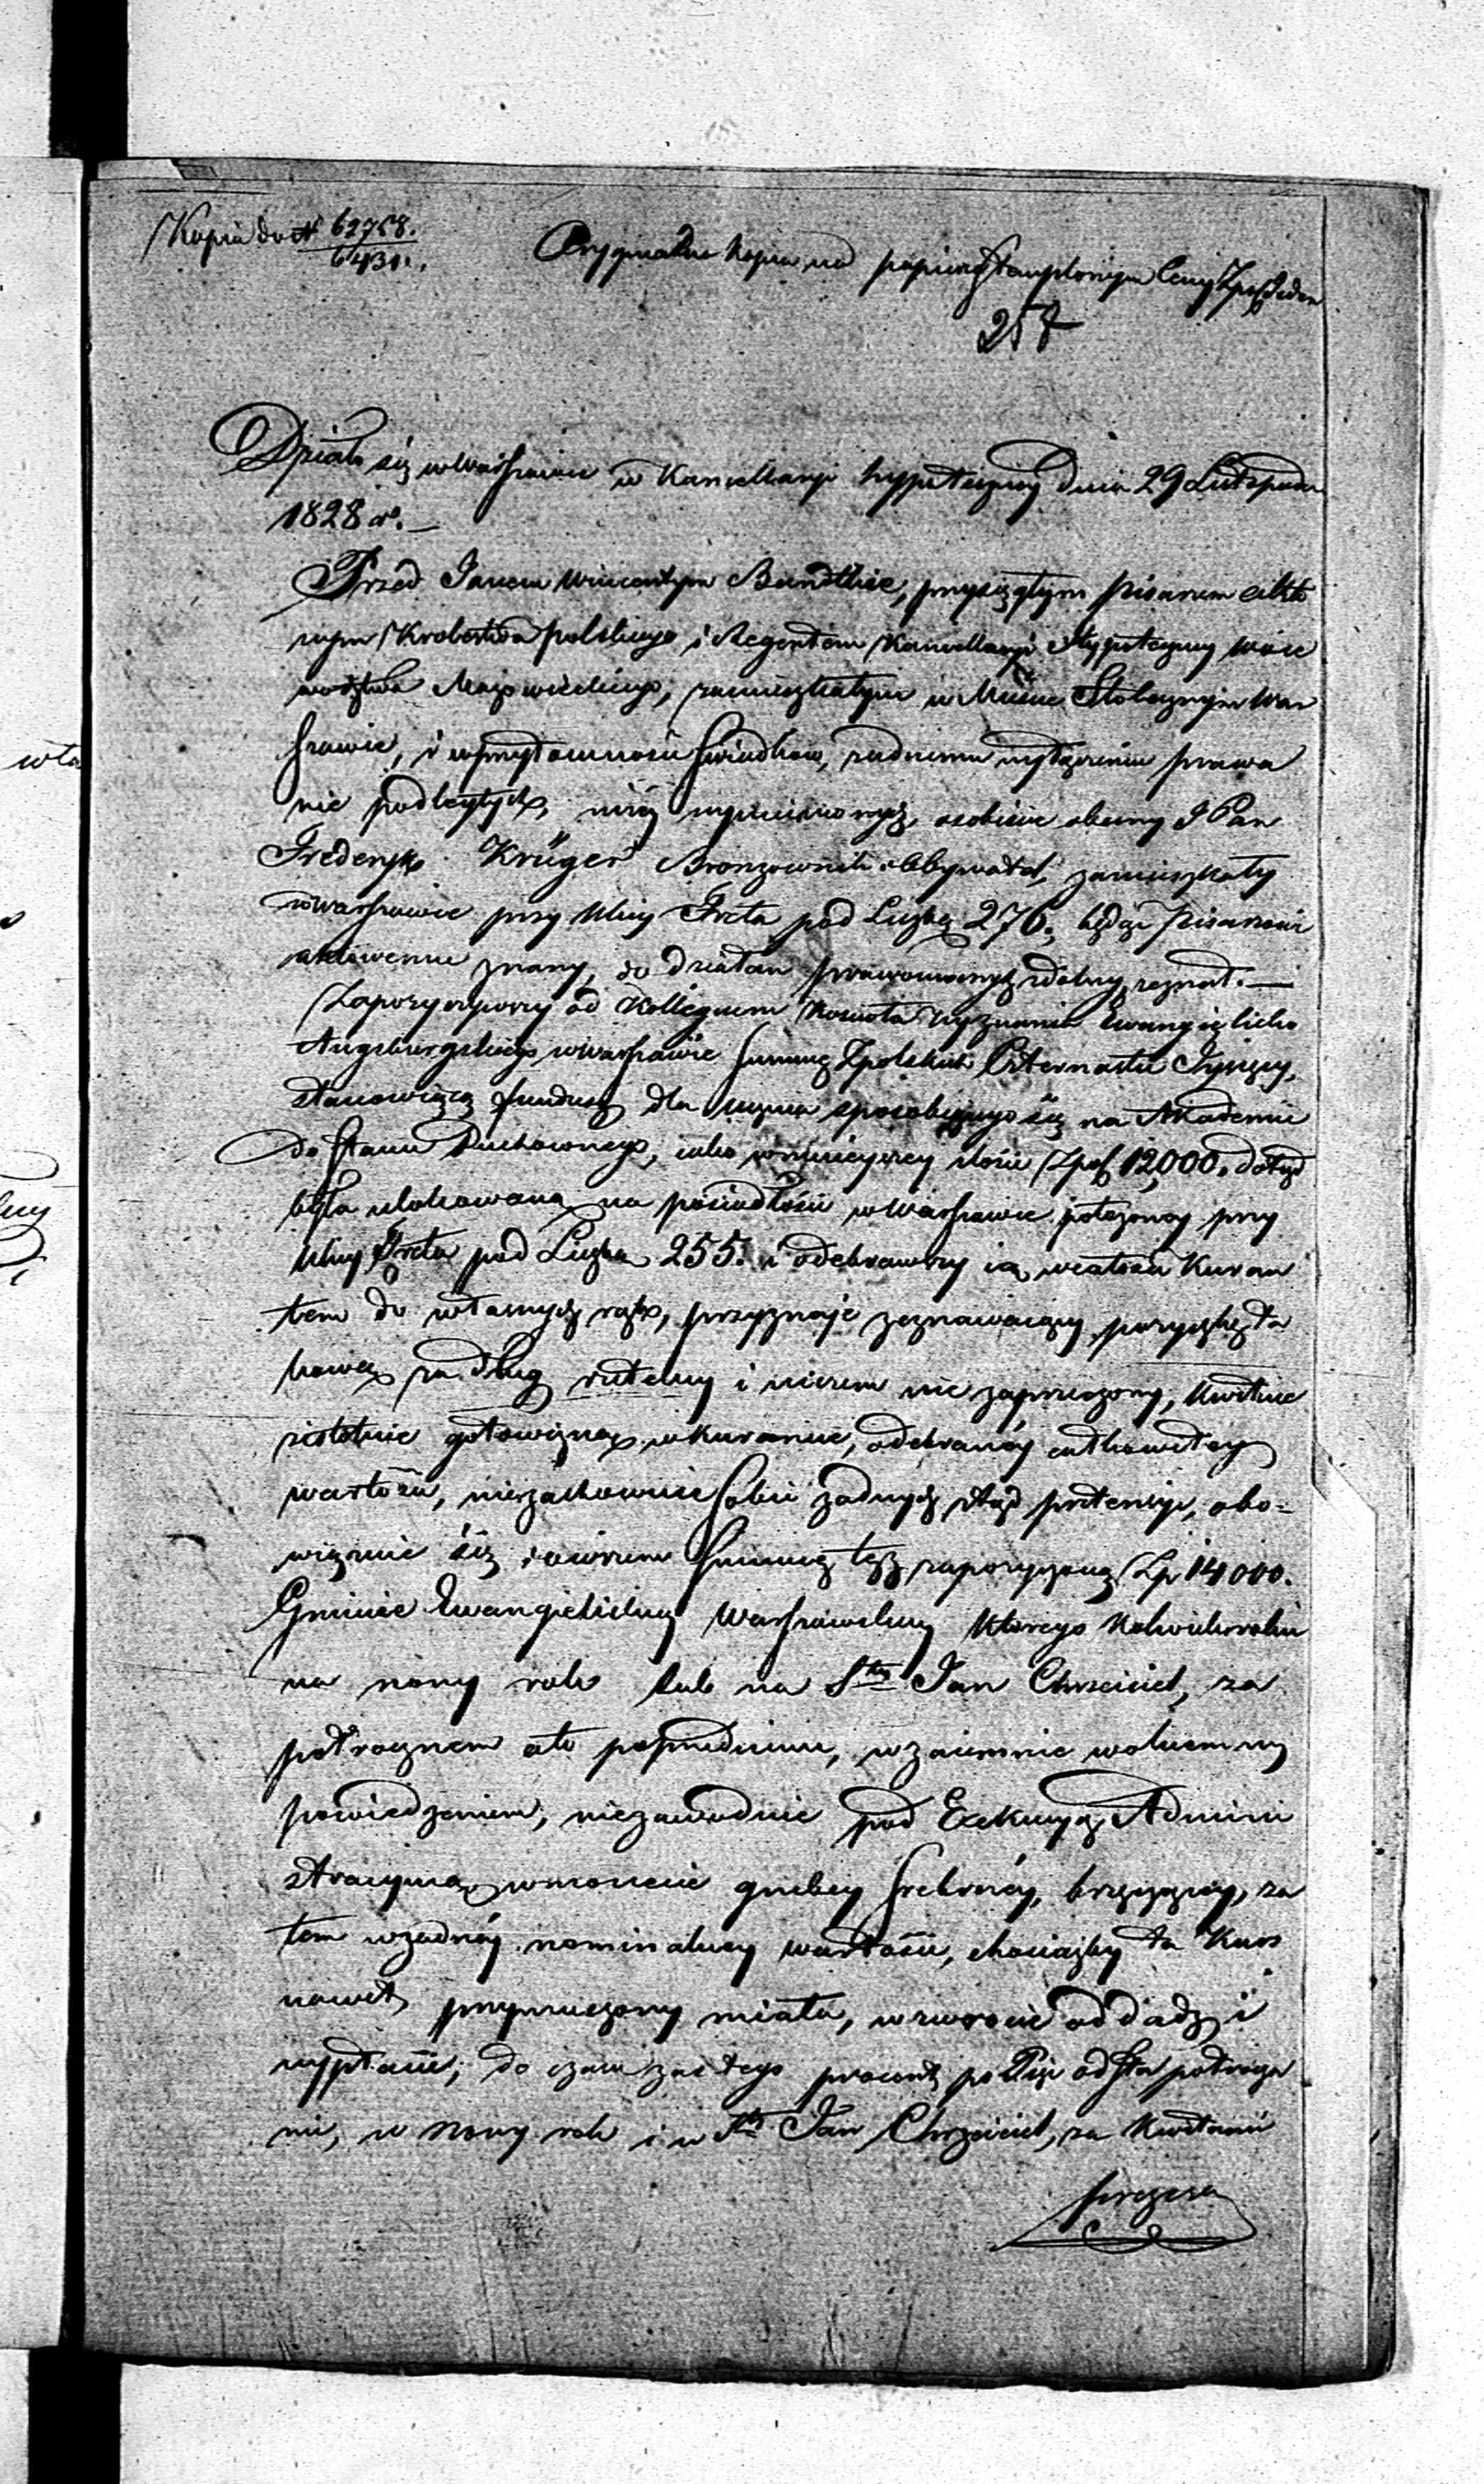 Kopia do N 62758.
6431.
Oryginalna kopia na papierze stemplowym Ceny Zp. Jeden
257
Działo się w Warszawie w Kancellaryi hypoteczney dnia 29 Listopada
1828 r. —
Przed Janem Wincentym Bandtkie, przysięgłym pisarzem akto
wym Krolestwa polskiego i Regentem Kancellaryi Hypoteczney Woie
wodztwa Mazowieckiego, zamieszkałym w Mieście Stołecznym War
szawie, i w przytomności świadkow, żadnemu wyłączeniu prawa
nie podległych, niżey wymienionych, osobiście obecny JPan
Frederyk Krüger Bronzownik Obywatel, zamieszkały
w Warszawie przy Ulicy Freta pod Liczbą 276, będąc Pisarzowi
aktowemu znany, do działań prawomocnych zdolny, zeznał. —
Zapożyczywszy od Kollegium Kościoła Wyznania Ewangielicko
Augsburgskiego w Warszawie summę Zpolskich Czternaście Tysięcy,
stanowiącą fundusz dla ucznia sposobiącego się na Akademii
do stanu Duchownego, iako w mnieyszey ilości Zpol. 12,000. dotąd
była ulokowana na posiadłości w Warszawie położoney przy
Ulicy Freta pod Liczbą 255. i odebrawszy ią w całości Kuran
tem do własnych rąk, przyznaje zeznawaiący pożyczkę ta
kową za dług rzetelny i niczem nie zaprzeczony, kwituie
z istotnie gotowizną w kurancie, odebraney całkowitey
wartości, niezachowuie sobie żadnych ztąd pretensyi, obo-
więzuie się i owszem summę tęż zapożyczoną Zp 14000.
Gminie Ewangielickiey Warszawskiey którego kolwiekroku
na nowy rok lub na Sty Jan Chrzciciel, za
półrocznem ale poprzedniem, wzaiemnie wolnem wy
powiedzeniem, niezawodnie pod Exekucyą Admini
stracyiną w monecie grubey srebrney, brzęczącey, za
tem w żadney nominalney wartości, chociażby ta kurs
nawet przymuszony miała, w zwrocie oddadź i
wypłacić; do czasu zaś tego procent po Pięć od sta półrocz
nie, w nowy rok i w Sty Jan Chrzciciel, za kwitami
prezesa